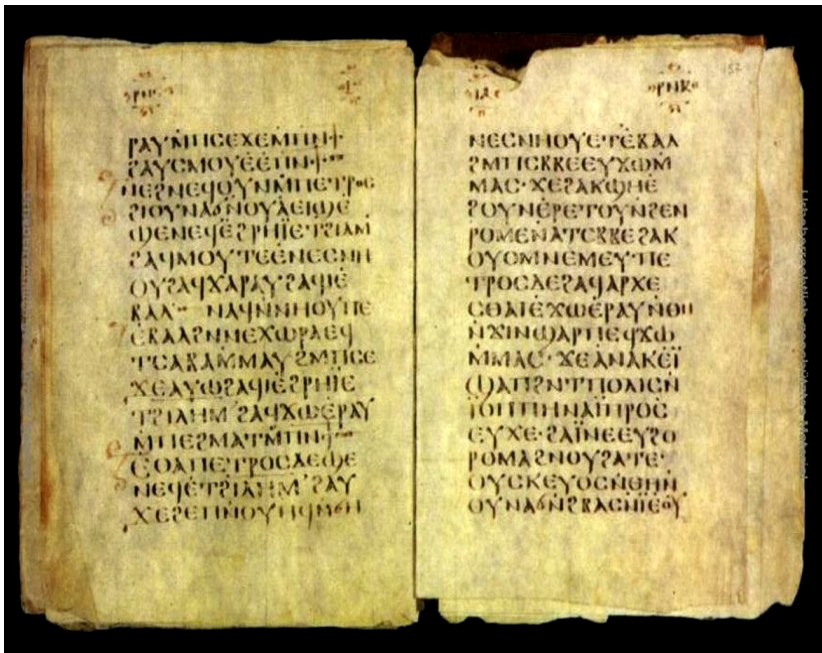 ⲣⲛⲁ
ⲣⲁⲩⲙ̇ⲡⲥⲉϫⲉⲙ̇ⲡⲛ̇ϯ
ϩⲁⲩⲥⲙⲟⲩⲉ̇ⲉ̇ⲡⲛ̇ϯ·
ⲛⲉϩⲛⲉϥⲟⲩⲛⲙ̇ⲡⲉⲧⲣⲟⲥ
ϩⲓⲟⲩⲛⲁϭⲛ̇ⲟⲩⲁⲉⲓϣⲉ̇
ϣⲉⲛⲉϥⲉ̇ϩⲣⲏⲓ̈ⲉⲧϩⲓⲗⲙ
ϩⲁϥⲙⲟⲩⲧⲉⲉ̇ⲛⲉⲥⲛⲏ
ⲟⲩϩⲁϥⲭⲁⲣⲁⲩ· ϩⲁϥⲓ̈ⲉ̇
ⲃⲁⲗ· ⲛⲁϥⲛ̇ⲛⲏⲟⲩⲡⲉ
ⲉ̇ⲃⲁⲗϩⲛⲛⲉⲭⲱⲣⲁⲉϥ
ⲧⲥⲁⲃⲁⲙ̇ⲙⲁⲩϩⲙ̇ⲡⲥⲉ
ϫⲉⲁⲩⲱϩⲁϥⲓ̈ⲉ̇ϩⲣⲏⲓ̈ⲉ
ⲧϩⲓⲗⲏⲙ ϩⲁϥϫⲱⲉ̇ⲣⲁⲩ
ⲙ̇ⲡⲉϩⲙⲁⲧⲙ̇ⲡⲛ̇ϯ
ⲉⲑⲁⲡⲉⲧⲣⲟⲥⲇⲉϣⲉ
ⲛⲉϥⲉ̇ⲧϩⲓⲗⲏⲙ· ϩⲁⲩ
ⲓⲁ
ⲣⲛⲃ
ⲛⲉⲥⲛⲏⲟⲩⲉ·ⲧⲉ̇ⲃⲁⲗ
ϩⲙⲡⲥⲃⲃⲉⲉⲩϫⲱⲙ̇
ⲙⲁⲥ·ϫⲉϩⲁⲕϣⲏⲉ̇
ϩⲟⲩⲛⲉ̇ⲣⲉⲧⲟⲩⲛ̇ϩⲉⲛ
ⲣⲟⲙⲉⲛⲁ̇ⲧⲥⲃⲃⲉϩⲁⲕ
ⲟⲩⲟⲙⲛⲉⲙⲉⲩ·ⲡⲉ
ⲧⲣⲟⲥⲇⲉϩⲁϥⲁⲣⲭⲉ
ⲥⲑⲁⲓⲉ̇ϫⲱⲉ̇ⲣⲁⲩⲛ̇ⲑⲏ
ⲛ̇ϫⲓⲛϣⲁⲣⲡⲉϥϫⲱ
ⲙ̇ⲙⲁⲥ· ϫⲉⲁⲛⲁⲕⲉⲓ̈
ϣⲁⲡϩⲛ·ⲧⲡⲟⲗⲓⲥⲛ̇
ⲓ̈ⲟⲡⲡⲏⲛⲁⲓ̈ⲡⲣⲟⲥ
ⲉⲩⲭⲉ·ϩⲁⲓ̈ⲛⲉⲉⲩϩⲟ
ⲣⲟⲙⲁϩⲛⲟⲩϩⲁⲧⲉ·
ⲟⲩⲥⲕⲉⲩⲟⲥⲛ̇ⲑⲏⲛ̇
ⲟⲩⲛⲁϭⲛ̇ϩⲃⲁⲥⲛ̇ⲓ̈ⲉⲟⲩ